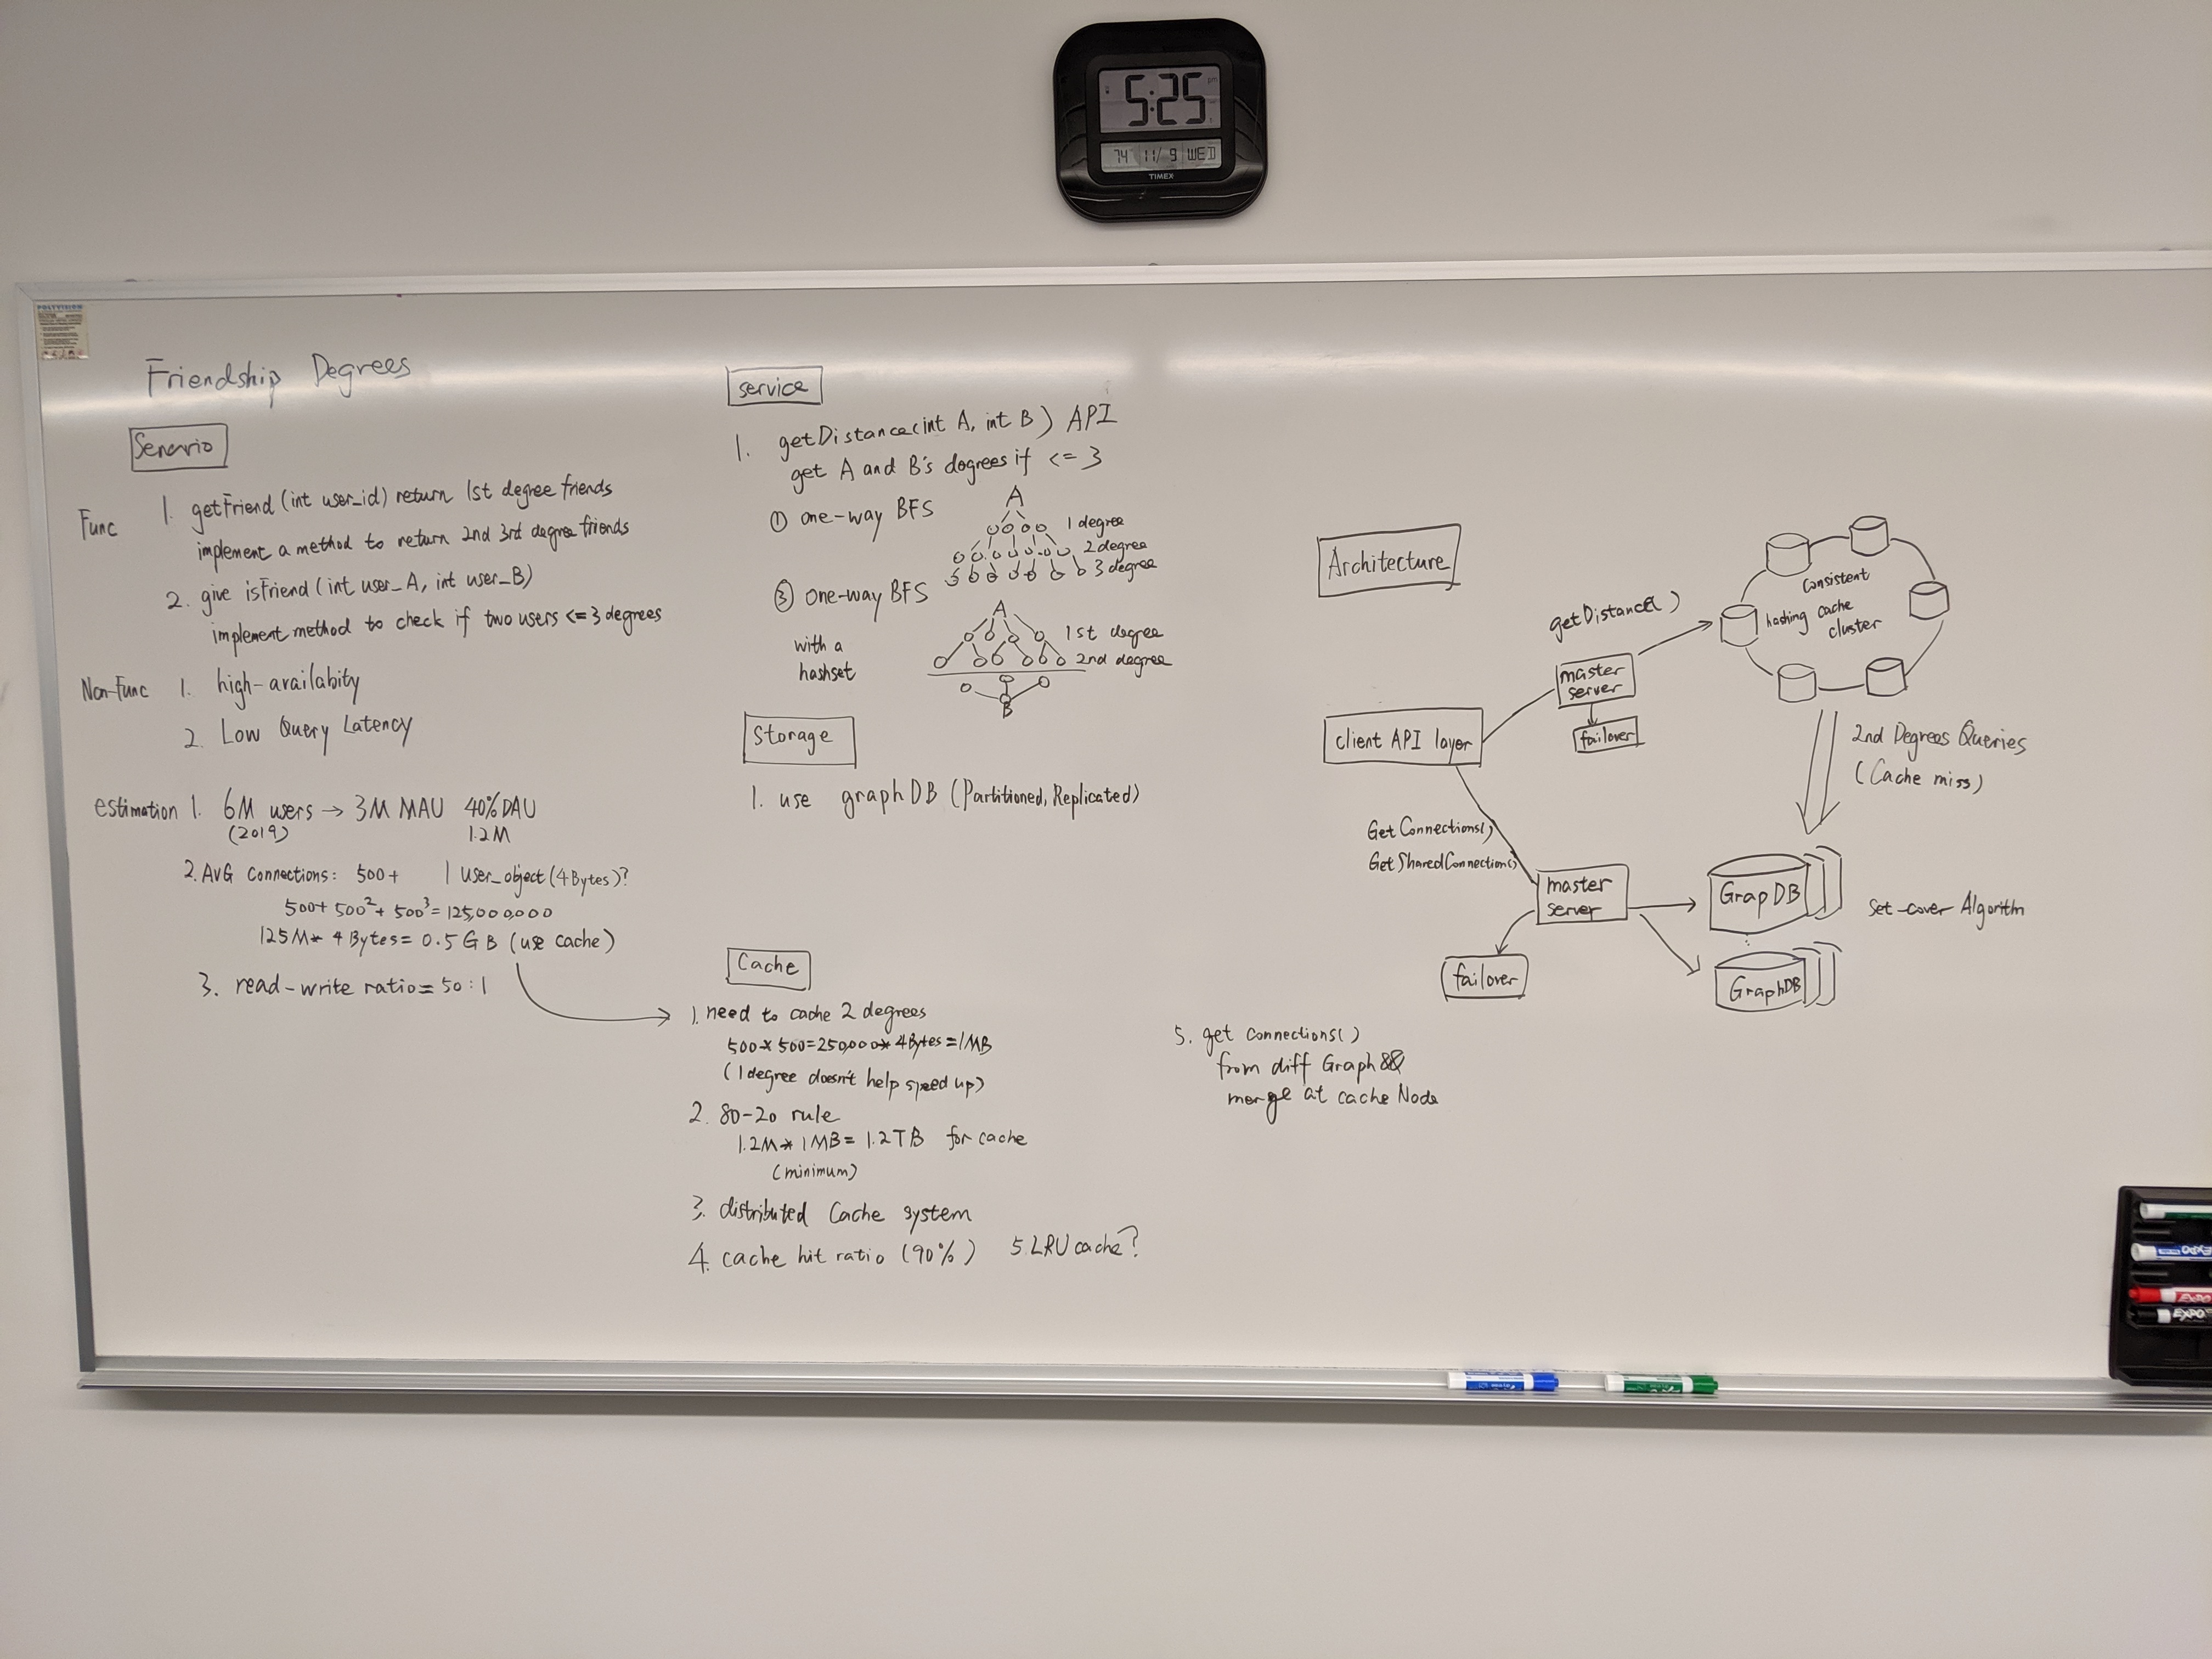 5:25 pm
74 11/9 WED
TIMEX
POLYVISION
Friendship Degrees
Senario
Func
1. getFriend (int user_id) return 1st degree friends
implement a method to return 2nd 3rd degree friends
2. give isFriend (int user_A, int user_B)
implement method to check if two users <= 3 degrees
Non-Func 1. high-availabity
2. Low Query Latency
estimation 1. 6M users → 3M MAU 40% DAU
(2019) 1.2M
2. AVG Connections: 500+ 1 user_object (4 Bytes)?
500+ 500² + 500³ = 125,000,000
125M * 4 Bytes = 0.5 GB (use cache)
3. read-write ratio = 50:1
service
1. getDistance(int A, int B) API
get A and B's degrees if <= 3
① one-way BFS
A
1 degree
2 degree
3 degree
③ one-way BFS
with a
hashset
A
1st degree
2nd degree
B
Storage
1. use graphDB (Partitioned, Replicated)
Cache
1. need to cache 2 degrees
500 x 500 = 250,000 * 4 Bytes = 1MB
(1 degree doesn't help speed up)
2. 80-20 rule
1.2M * 1MB = 1.2TB for cache
(minimum)
3. distributed Cache system
4. cache hit ratio (90%) 5. LRU cache?
Architecture
client API layer
getDistance( )
master
server
failover
Consistent
hashing cache
cluster
2nd Degrees Queries
(Cache miss)
GetConnections()
GetSharedConnection()
master
server
failover
GrapDB
GraphDB
Set-cover Algorithm
5. get connections( )
from diff Graph
merge at cache Node
EXPO
EXPO
EXPO